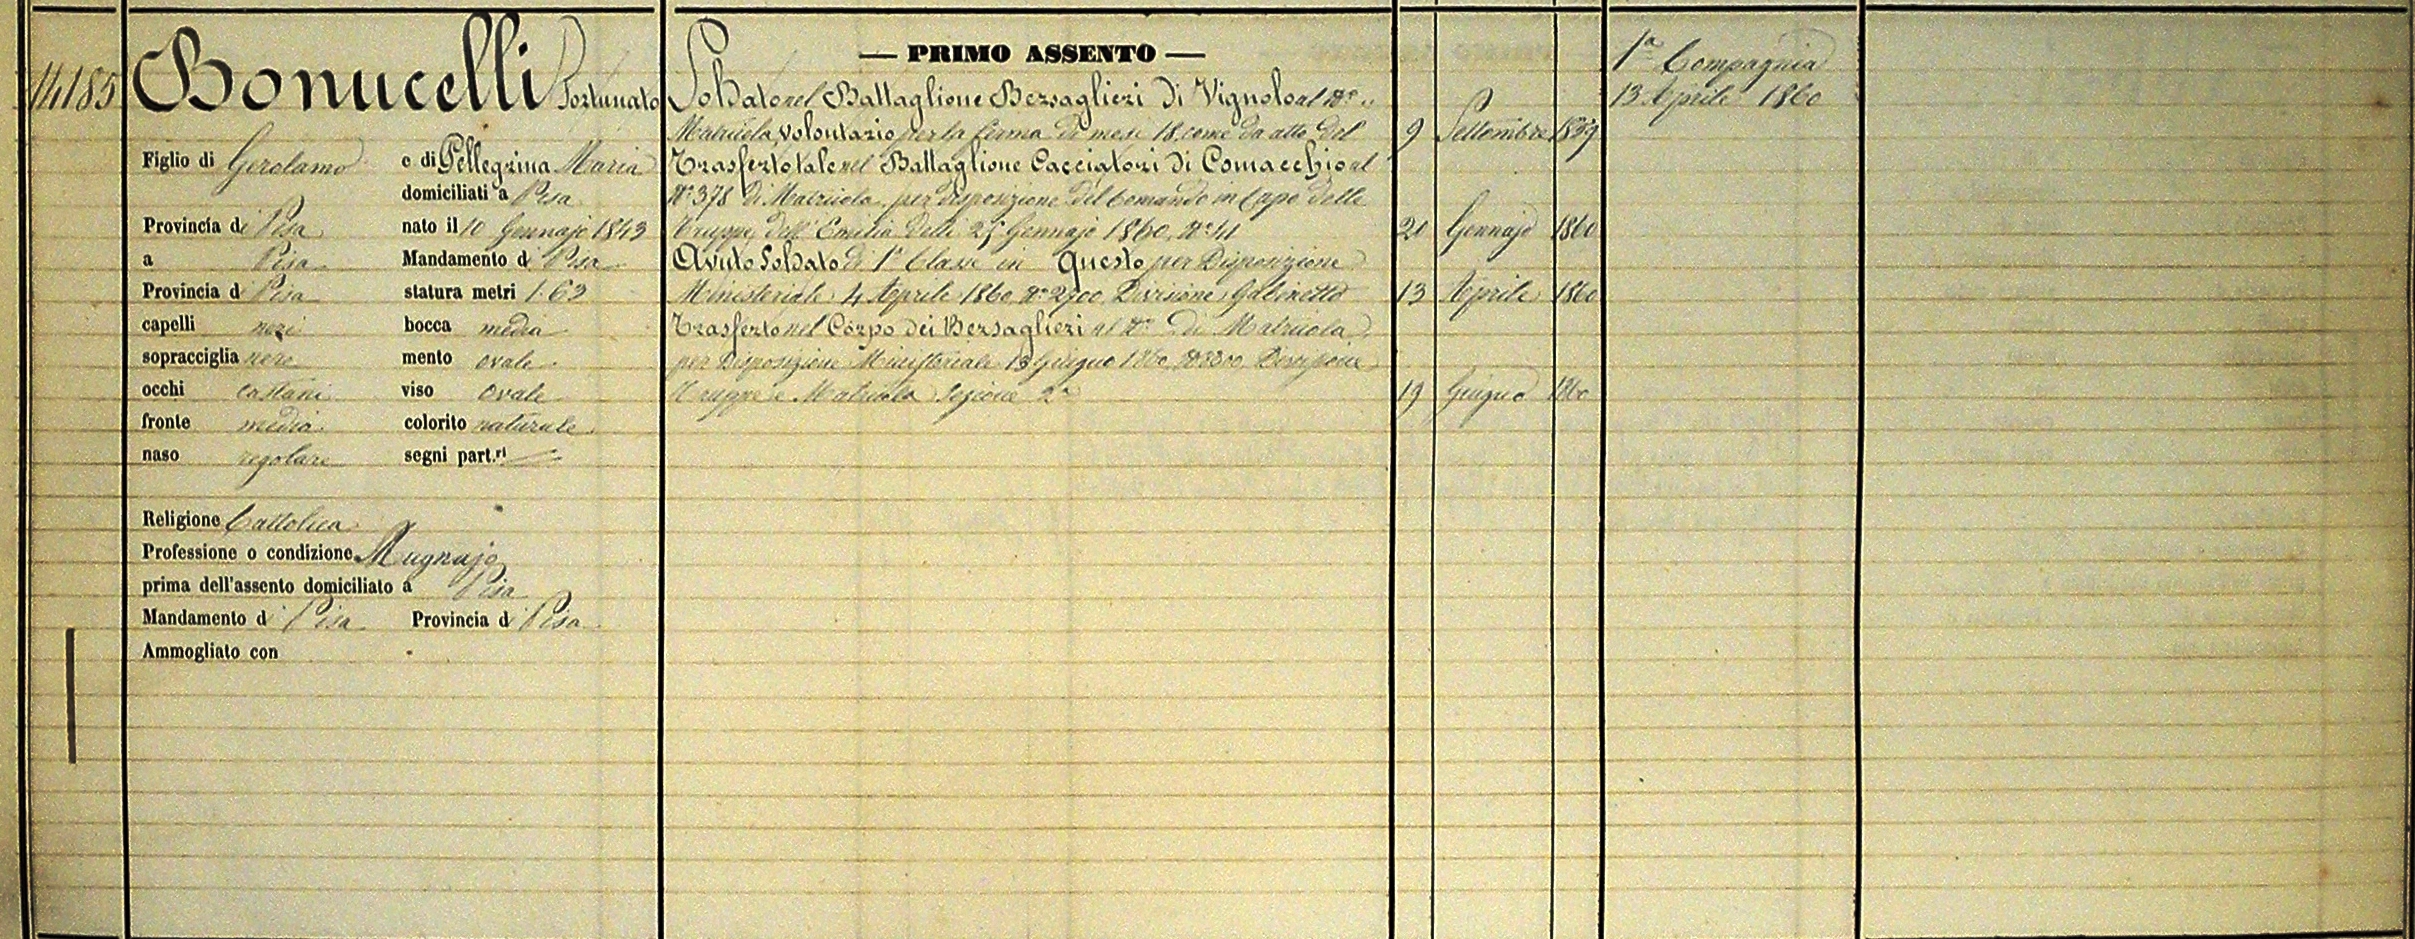 14185
Bonucelli Fortunato
Figlio di Gerolamo e di Pellegrina Maria
domiciliati a Pisa
Provincia di Pisa nato il 10 Gennajo 1843
a Pisa Mandamento di Pisa
Provincia di Pisa statura metri 1.63
capelli neri bocca media
sopracciglia nere mento ovale
occhi castani viso ovale
fronte media colorito naturale
naso regolare segni part.ri
Religione Cattolica
Professione o condizione Mugnajo
prima dell'assento domiciliato a Pisa
Mandamento di Pisa Provincia di Pisa
Ammogliato con
— PRIMO ASSENTO —
Soldato nel Battaglione Bersaglieri di Vignolo al N°
Matricola, volontario per la ferma di mesi 18 come da atto del 9 Settembre 1859
Trasferto tale nel Battaglione Cacciatori di Comacchio al
N° 378 di Matricola, per disposizione del Comando in Capo delle
Truppe dell'Emilia delli 25 Gennajo 1860, N° 41 Gennajo 1860
Avuto Soldato di 1a Classe in Questo per Disposizione
Ministeriale 4 Aprile 1860 N° 2900, Divisione Gabinetto 13 Aprile 1860
Trasferto nel Corpo dei Bersaglieri al N° di Matricola
per Disposizione Ministeriale 13 Giugno 1860, Divisione
Truppe e Matricola Sezione 2a 19 Giugno 1860
1a Compagnia
13 Aprile 1860